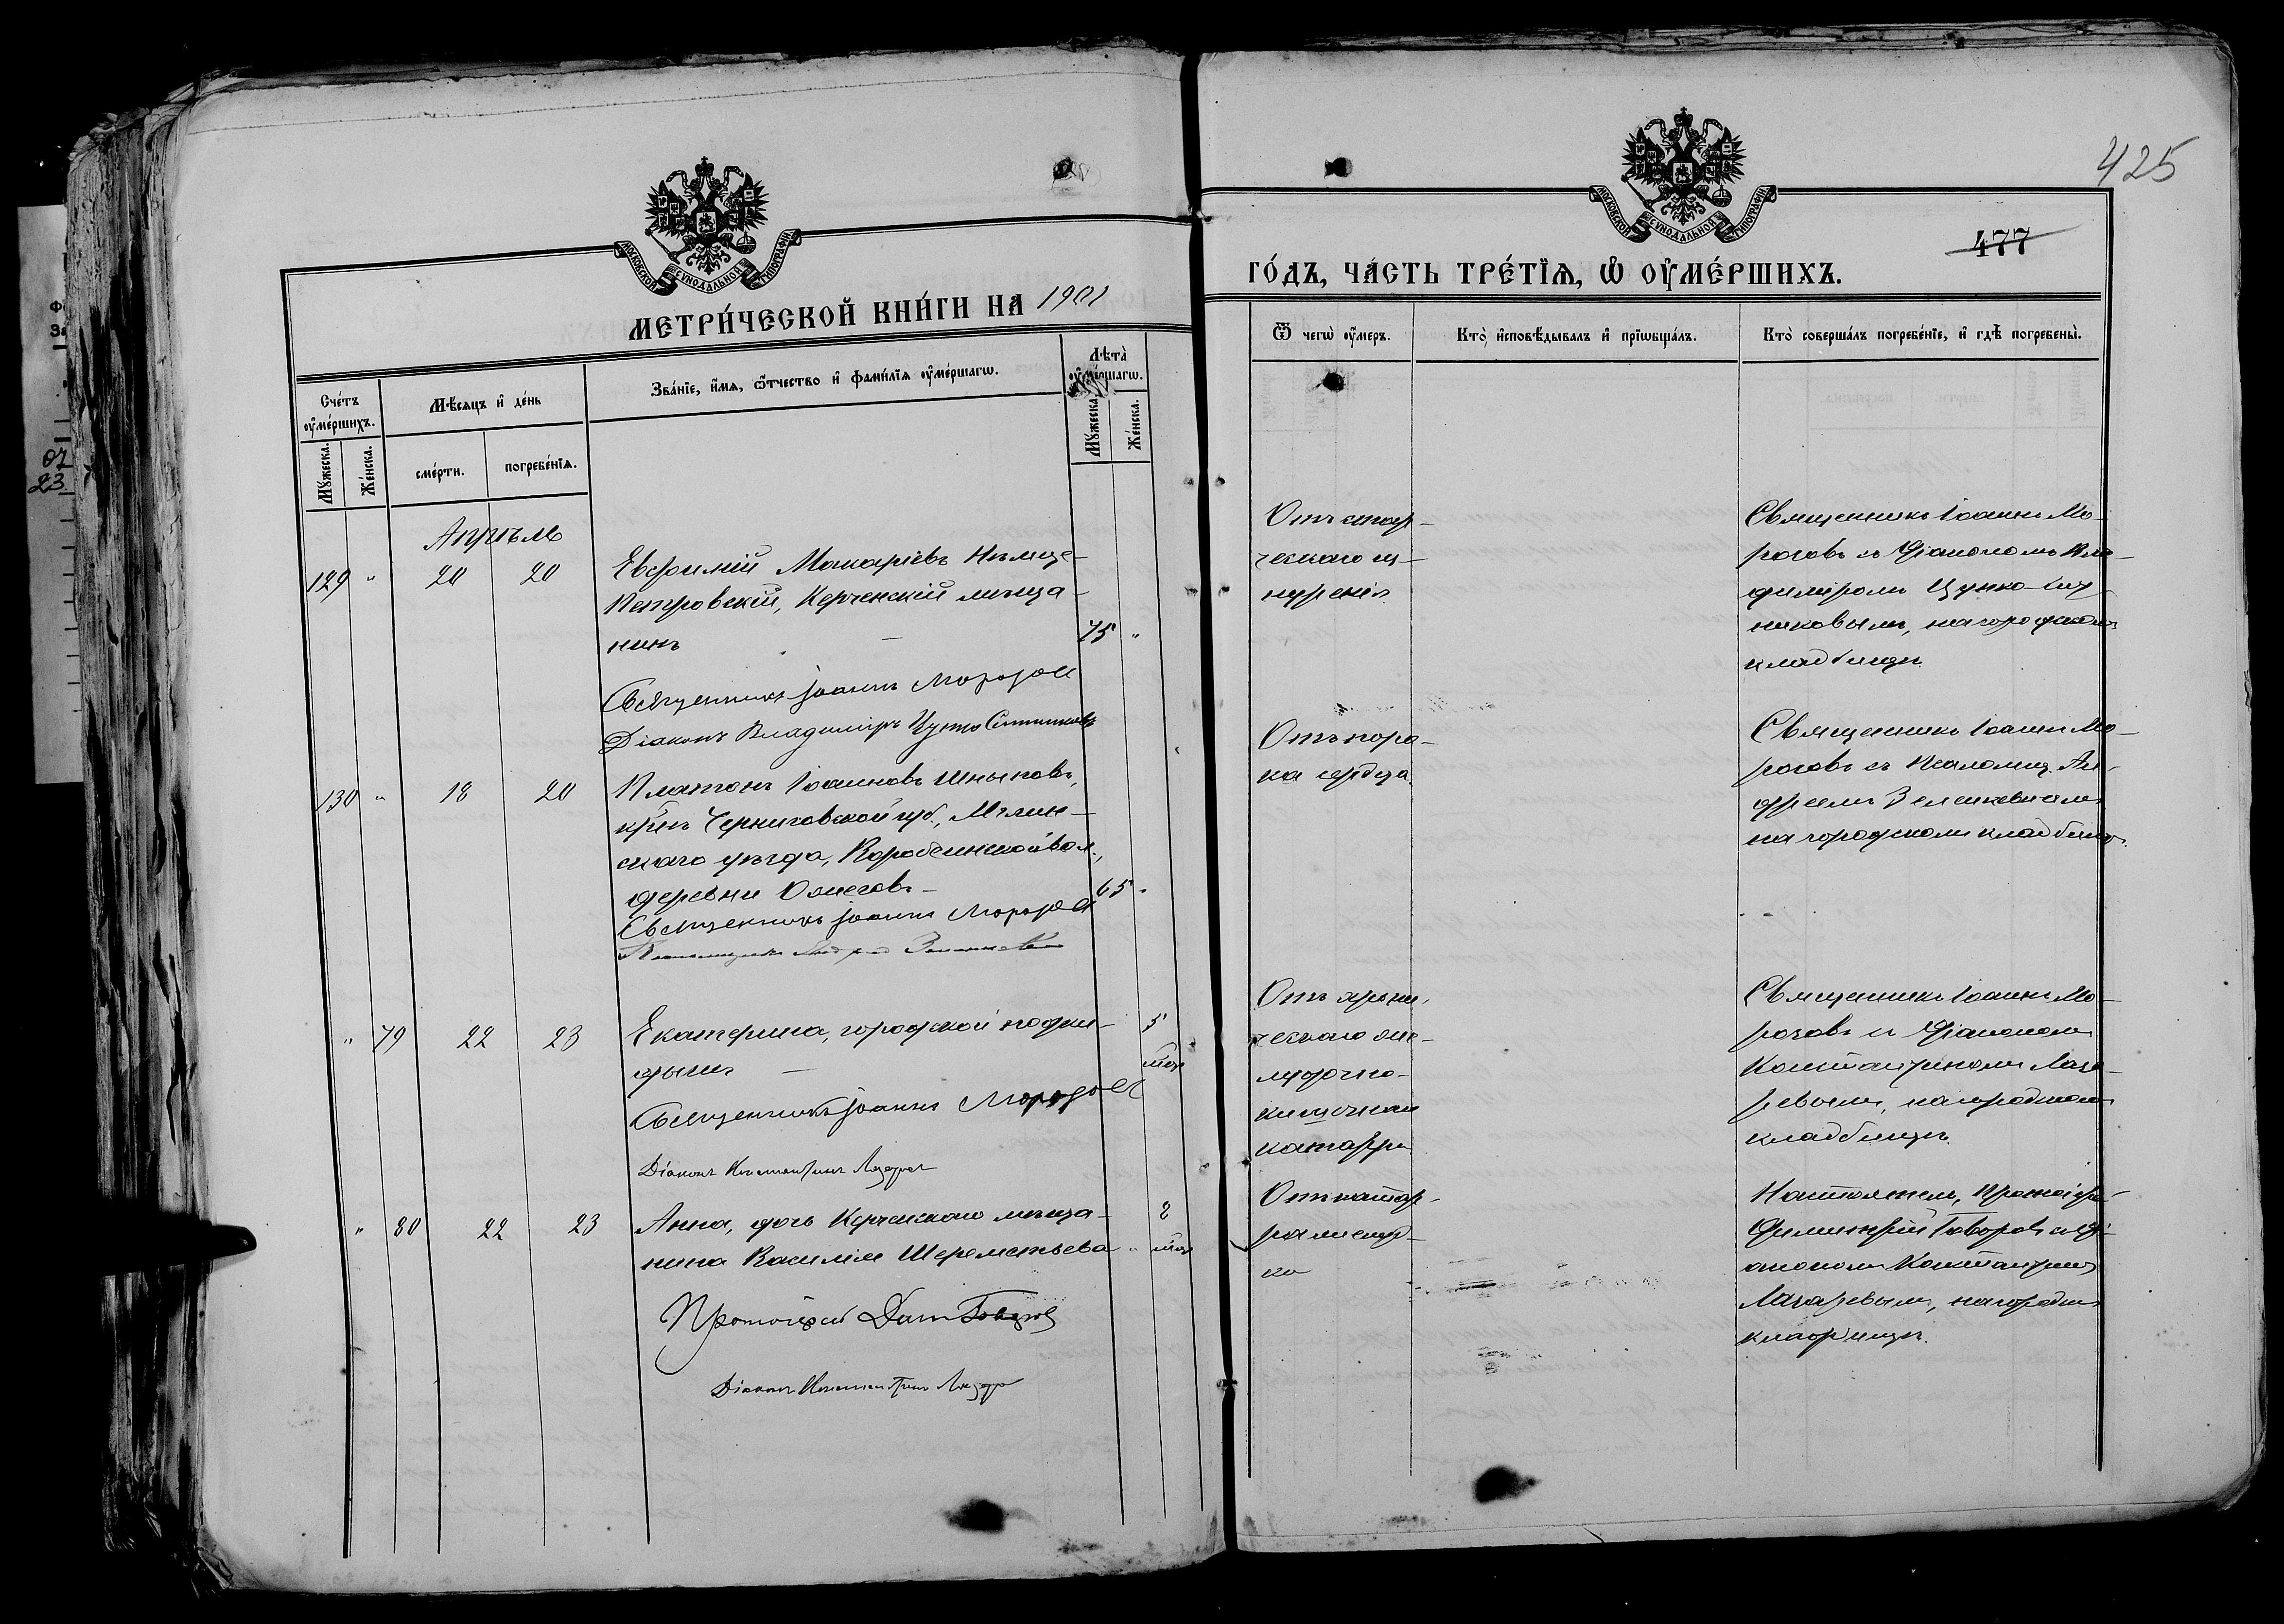 425
477
МОСКОВСКОЙ СѴНОДАЛЬНОЙ ТИПОГРАФІИ
МОСКОВСКОЙ СѴНОДАЛЬНОЙ ТИПОГРАФІИ
МЕТРИ́ЧЕСКОЙ КНИ́ГИ НА 1901
ГО́ДЪ, ЧА́СТЬ ТРЕ́ТЇѦ, Ѡ҆ ОУ҆МЕ́РШИХЪ.
Сче́тъ оу҆ме́ршихъ.
Мꙋ́жеска.
Же́нска.
Мѣ́сѧцъ и҆ де́нь
сме́рти.
погребе́нїѧ.
Зва́нїе, и҆́мѧ, ѻ҆́тчество и҆ фами́лїѧ оу҆ме́ршагѡ.
Лѣ́та оу҆ме́ршагѡ.
Мꙋ́жеска.
Же́нска.
Ѿ чегѡ̀ оу҆́меръ.
Кто̀ и҆сповѣ́дывалъ и҆ прїѡбща́лъ.
Кто̀ соверша́лъ погребе́нїе, и҆ гдѣ̀ погребены̀.
Апрѣль
129 " 20 20
Евфимій Макаріевъ Нѣмце-
Петровскій, Керченскій мѣща-
нинъ — 75 "
Священникъ Іоаннъ Морозов
Діаконъ Владиміръ Цунко Ситниковъ
Отъ стар-
ческаго из-
нуренія
Священникъ Іоаннъ Мо-
розовъ съ Діакономъ Вла-
диміромъ Цунко-Сит-
никовымъ, на городском
кладбищѣ.
130 " 18 20
Платонъ Іоанновъ Шныповъ,
кр̃нъ Черниговской губ., Мглин-
скаго уѣзда, Воробеинской вол.,
деревни Ожегов- 65 "
Священникъ Іоаннъ Морозов
Отъ поро-
ка сердца.
Священникъ Іоаннъ Мо-
розовъ съ Псаломщ. Ан-
дреемъ Зеленкевичемъ
на городскомъ кладбищѣ.
" 79 22 23
Екатерина, городской подки-
дышъ — 5 мѣс
Священникъ Іоаннъ Морозов
Діаконъ Константинъ Лазарев
Отъ хрони-
ческаго же-
лудочно-
кишечнаго
катарра
Священникъ Іоаннъ Мо-
розовъ съ Діакономъ
Константиномъ Лаза-
ревымъ, на городском
кладбищѣ.
" 80 22 23
Анна, дочь Керченскаго мѣща-
нина Василія Шереметьева " 2 мѣс
Протоіерей Дим Говоров
Діаконъ Константинъ Лазарев
Отъ катар-
ра желуд-
ка
Настоятель, Протоіерей
Димитрій Говоровъ съ Ді-
акономъ Константином
Лазаревымъ, на городск
кладбищѣ.